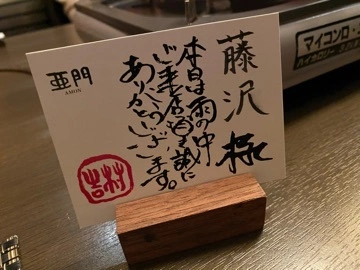 藤沢様
本日は雨の中
ご来店誠に
ありがとうございます。
亜門
AMON
吉村
マイコンロ